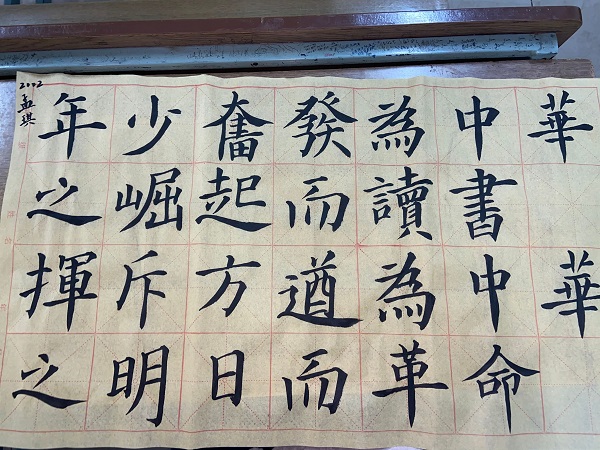 年少奮發為中華
之崛起而讀書
揮斥方遒為中華
之明日而革命
2112
孟琪